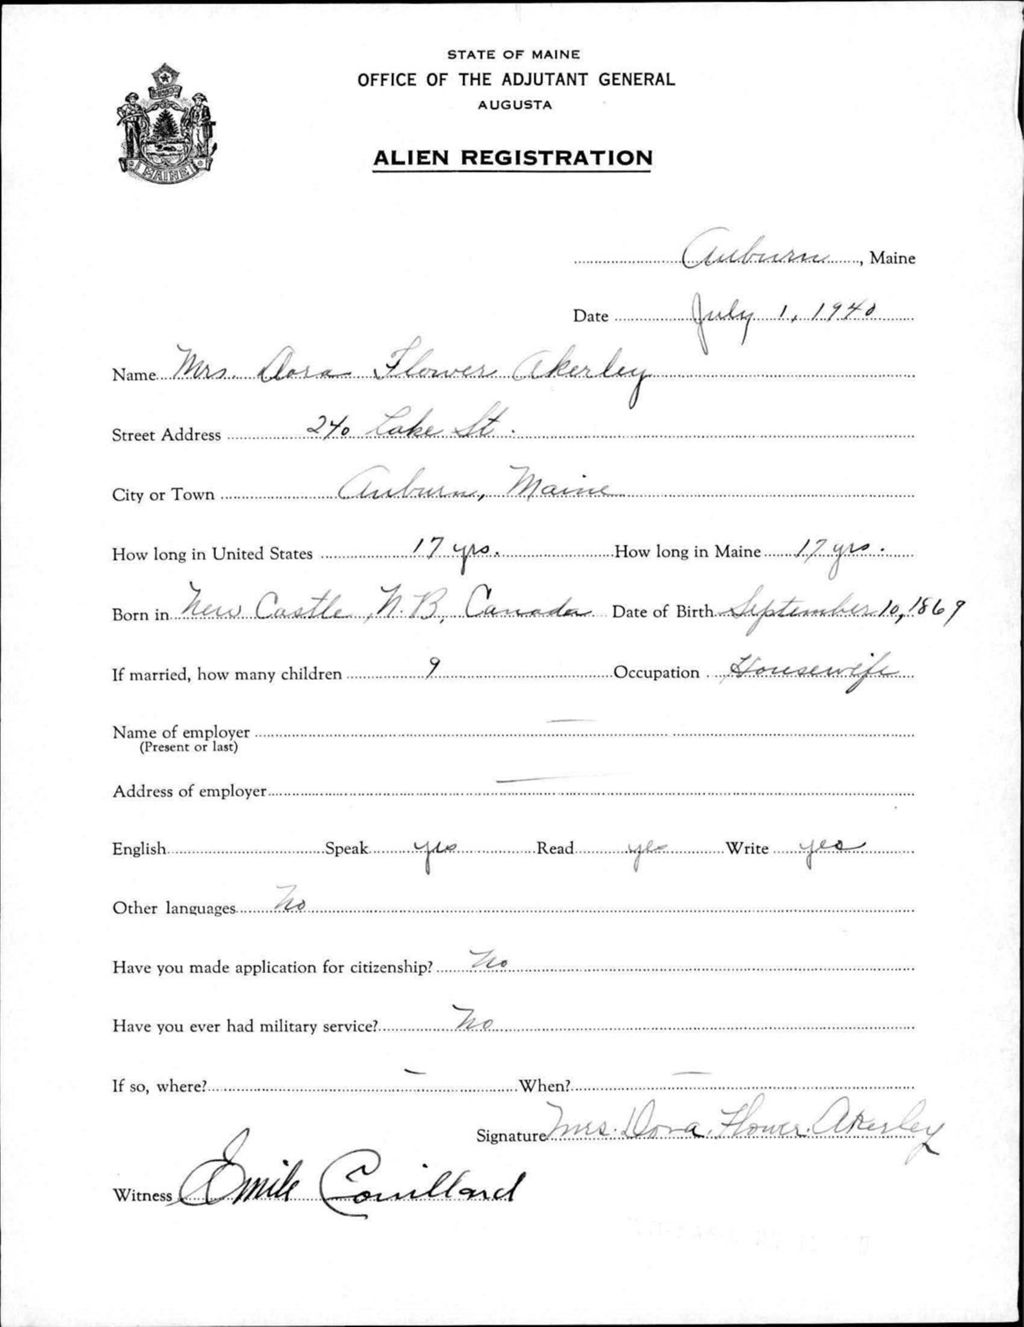 STATE OF MAINE
OFFICE OF THE ADJUTANT GENERAL
AUGUSTA
ALIEN REGISTRATION
MAINE
Auburn, Maine
Date July 1, 1940
Name Mrs. Dora Flower Akerley
Street Address 240 Lake St.
City or Town Auburn, Maine
How long in United States 17 yrs. How long in Maine 17 yrs.
Born in New Castle N.B, Canada Date of Birth September 10, 1869
If married, how many children 9 Occupation Housewife
Name of employer —
(Present or last)
Address of employer —
English Speak yes Read yes Write yes
Other languages No
Have you made application for citizenship? No
Have you ever had military service? No
If so, where? — When? —
Signature Mrs. Dora Flower Akerley
Witness Emile Couillard